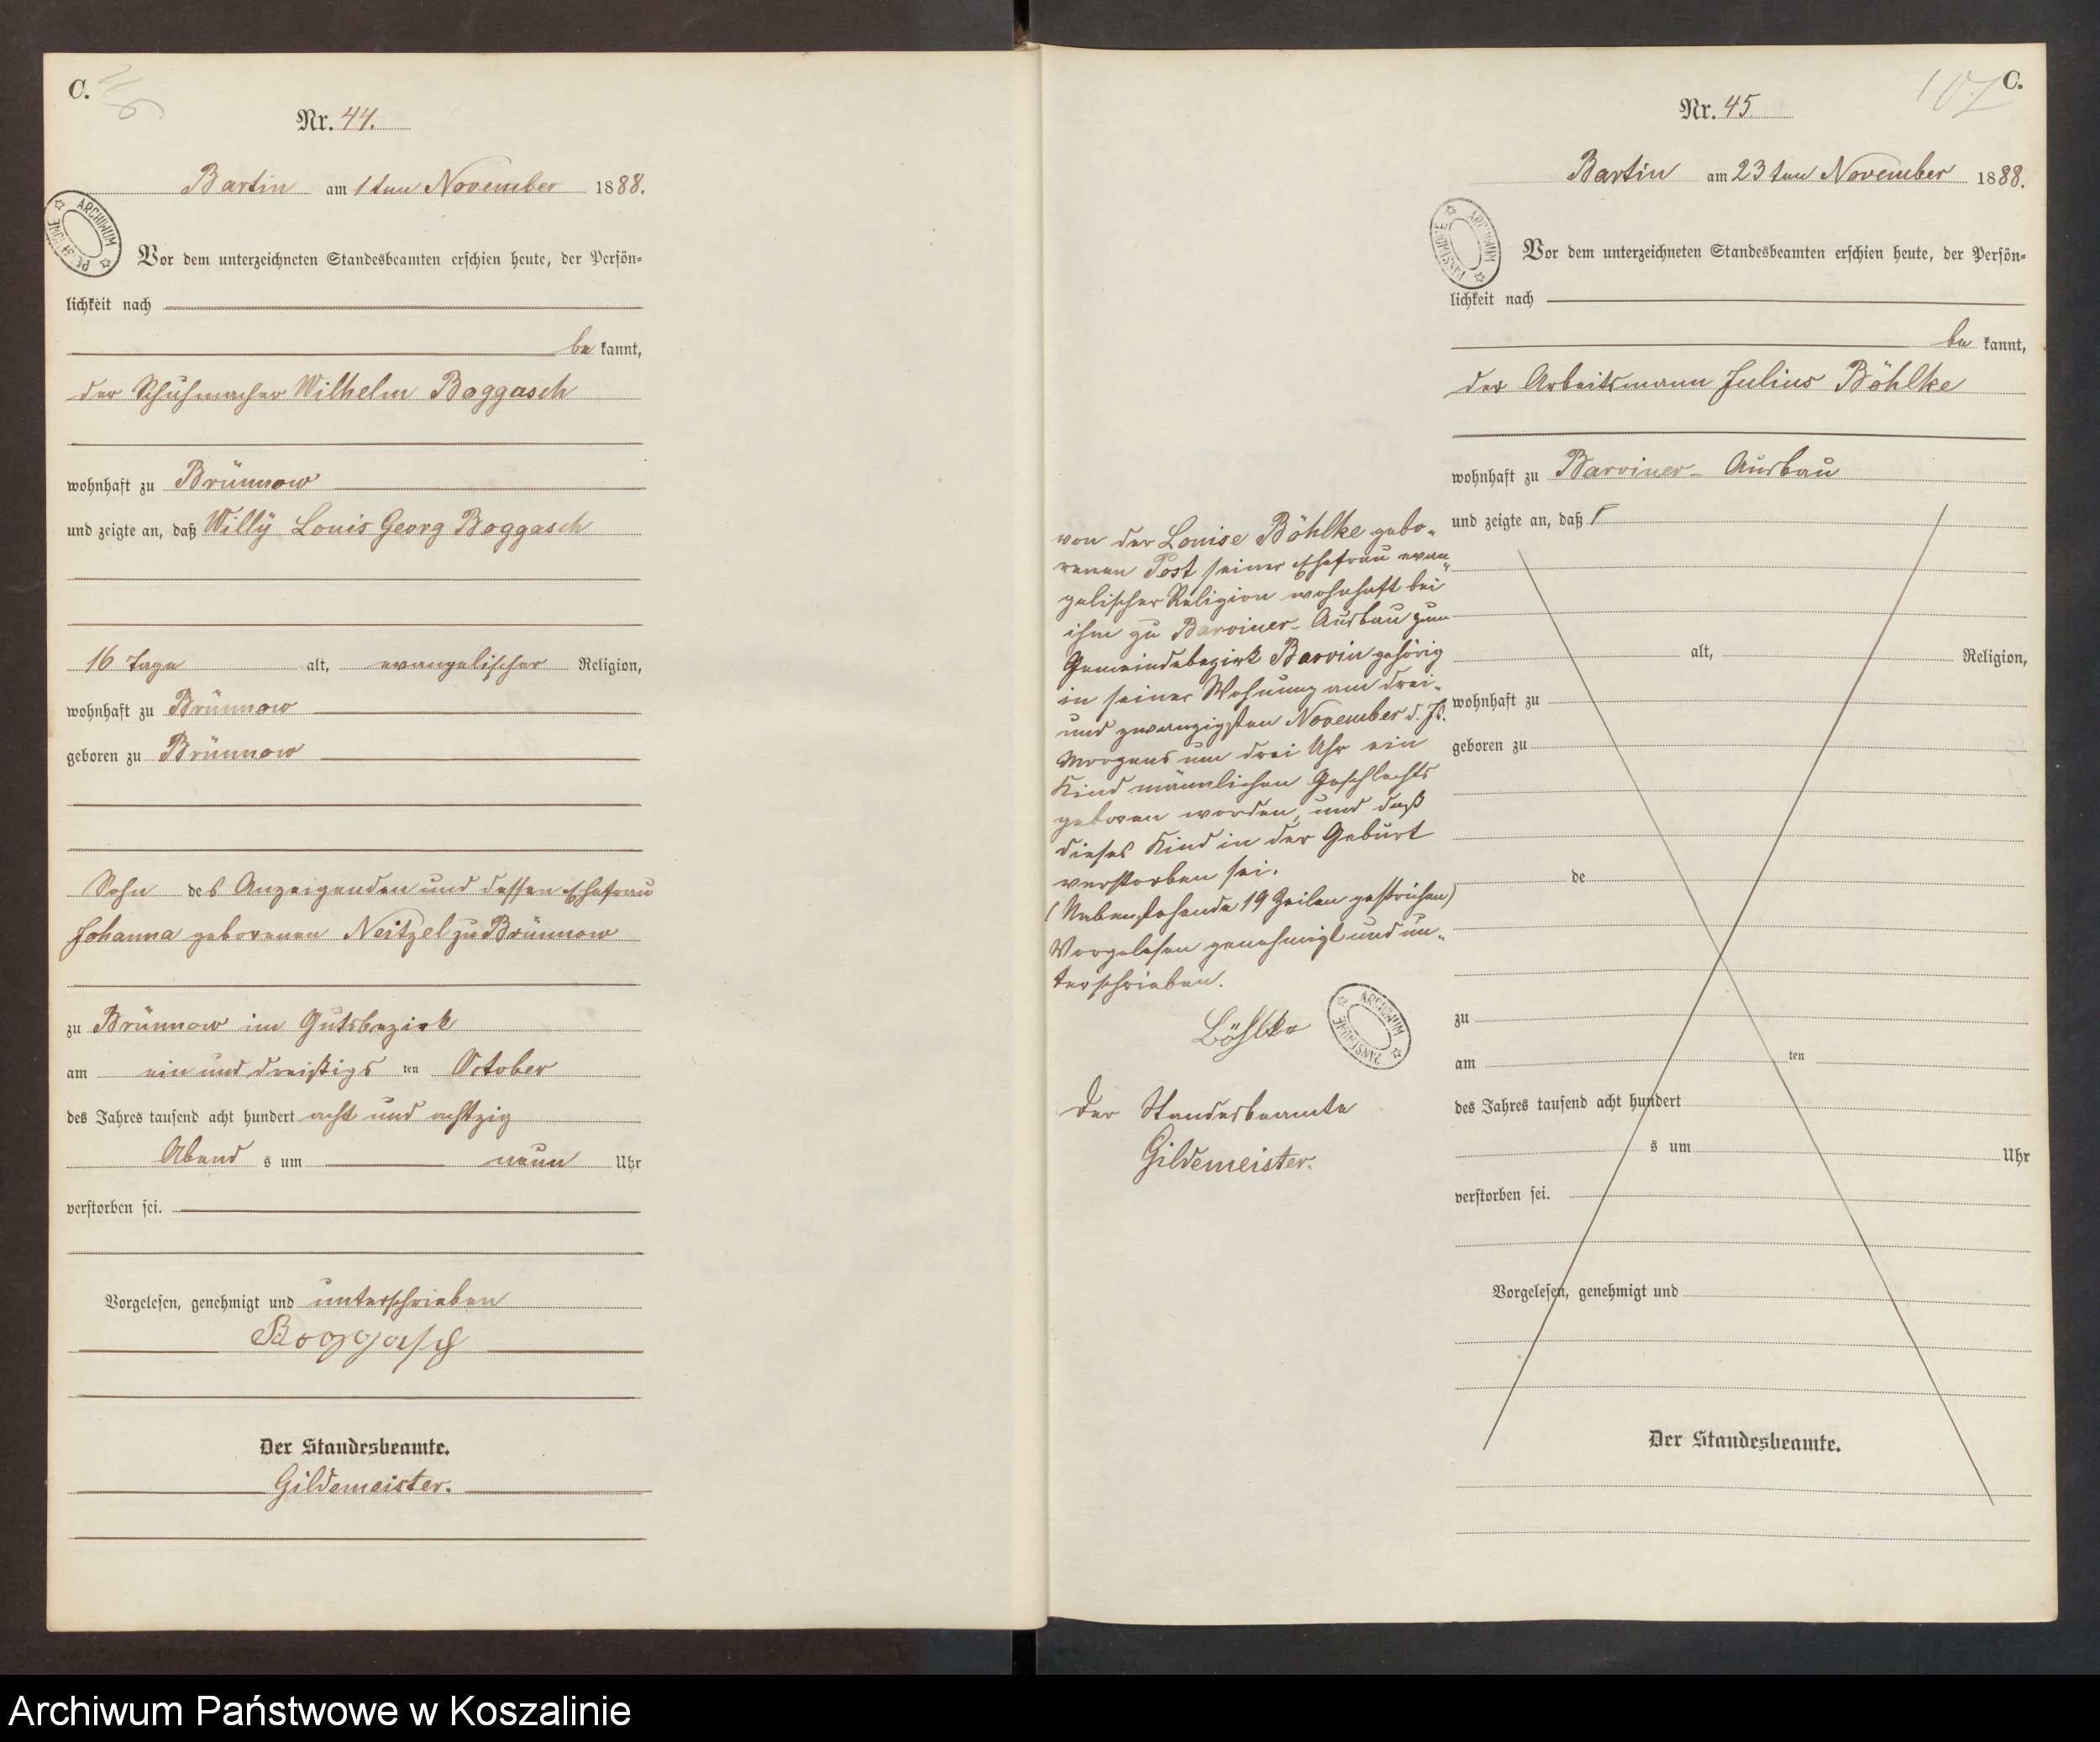 C.
Nr. 44.
Bartin am 1ten November 1888.
Vor dem unterzeichneten Standesbeamten erschien heute, der Persön-
lichkeit nach
be kannt,
der Schuhmacher Wilhelm Boggasch
wohnhaft zu Brünnow
und zeigte an, daß Willÿ Louis Georg Boggasch
16 Tage alt, evangelischer Religion,
wohnhaft zu Brünnow
geboren zu Brünnow
Sohn des Anzeigenden und dessen Ehefrau
Johanna geborenen Neitzel zu Brünnow
zu Brünnow im Gutsbezirk
am ein und dreißigs ten October
des Jahres tausend acht hundert acht und achtzig
Abend s um neun Uhr
verstorben sei.
Vorgelesen, genehmigt und unterschrieben
Boggasch
Der Standesbeamte.
Gildemeister.
107 C.
Nr. 45.
Bartin am 23ten November 1888.
Vor dem unterzeichneten Standesbeamten erschien heute, der Persön-
lichkeit nach
be kannt,
der Arbeitsmann Julius Böhlke
wohnhaft zu Barviner-Ausbau
und zeigte an, daß
von der Louise Böhlke gebo-
renen Post seiner Ehefrau evan-
gelischer Religion wohnhaft bei
ihm zu Barviner-Ausbau zum
Gemeindebezirk Barvin gehörig
in seiner Wohnung am drei-
und zwanzigsten November d. Js.
Morgens um drei Uhr ein
Kind männlichen Geschlechts
geboren worden, und daß
dieses Kind in der Geburt
verstorben sei.
(Nebenstehende 19 Zeilen gestrichen)
Vorgelesen genehmigt und un-
terschrieben.
Böhlke
Der Standesbeamte
Gildemeister.
alt, Religion,
wohnhaft zu
geboren zu
de
zu
am ten
des Jahres tausend acht hundert
s um Uhr
verstorben sei.
Vorgelesen, genehmigt und
Der Standesbeamte.
ARCHIWUM PAŃSTWOWE
ARCHIWUM PAŃSTWOWE
ARCHIWUM PAŃSTWOWE
Archiwum Państwowe w Koszalinie